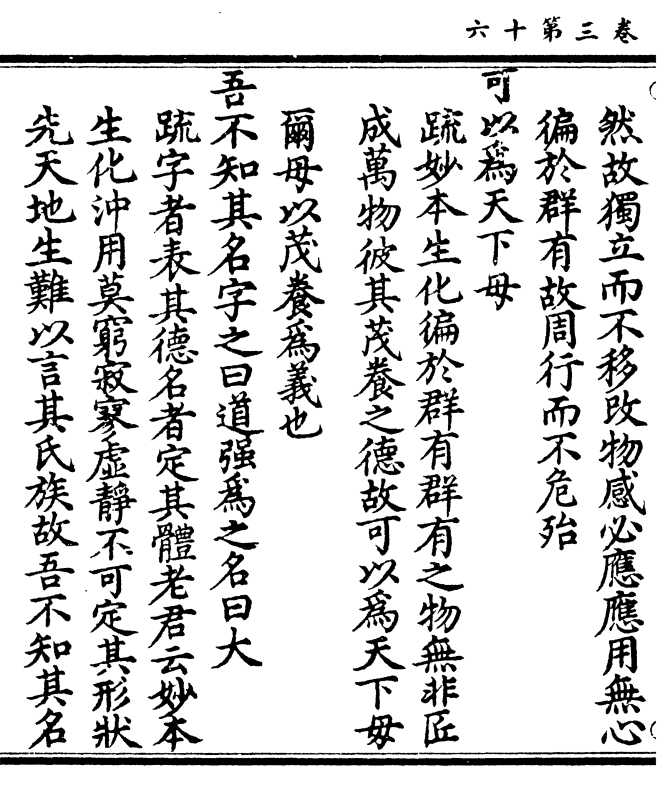 卷三第十六
然故獨立而不移改物感必應應用無心
徧於群有故周行而不危殆
可以爲天下母
疏妙本生化徧於群有群有之物無非匠
成萬物彼其茂養之德故可以爲天下母
爾母以茂養爲義也
吾不知其名字之曰道强爲之名曰大
疏字者表其德名者定其體老君云妙本
生化沖用莫窮寂寥虛靜不可定其形狀
先天地生難以言其氏族故吾不知其名